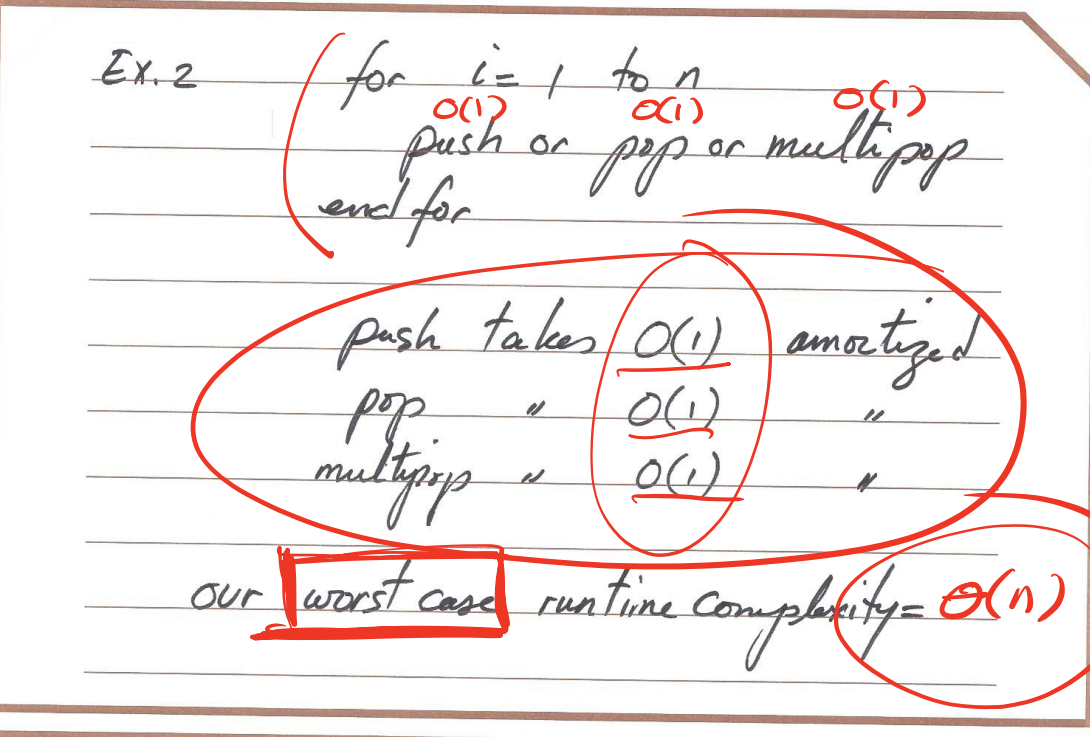 Ex. 2 for i= 1 to n
O(1) O(1) O(1)
push or pop or multipop
end for
push takes O(1) amortized
pop " O(1) "
multipop " O(1) "
our worst case runtime complexity= Θ(n)